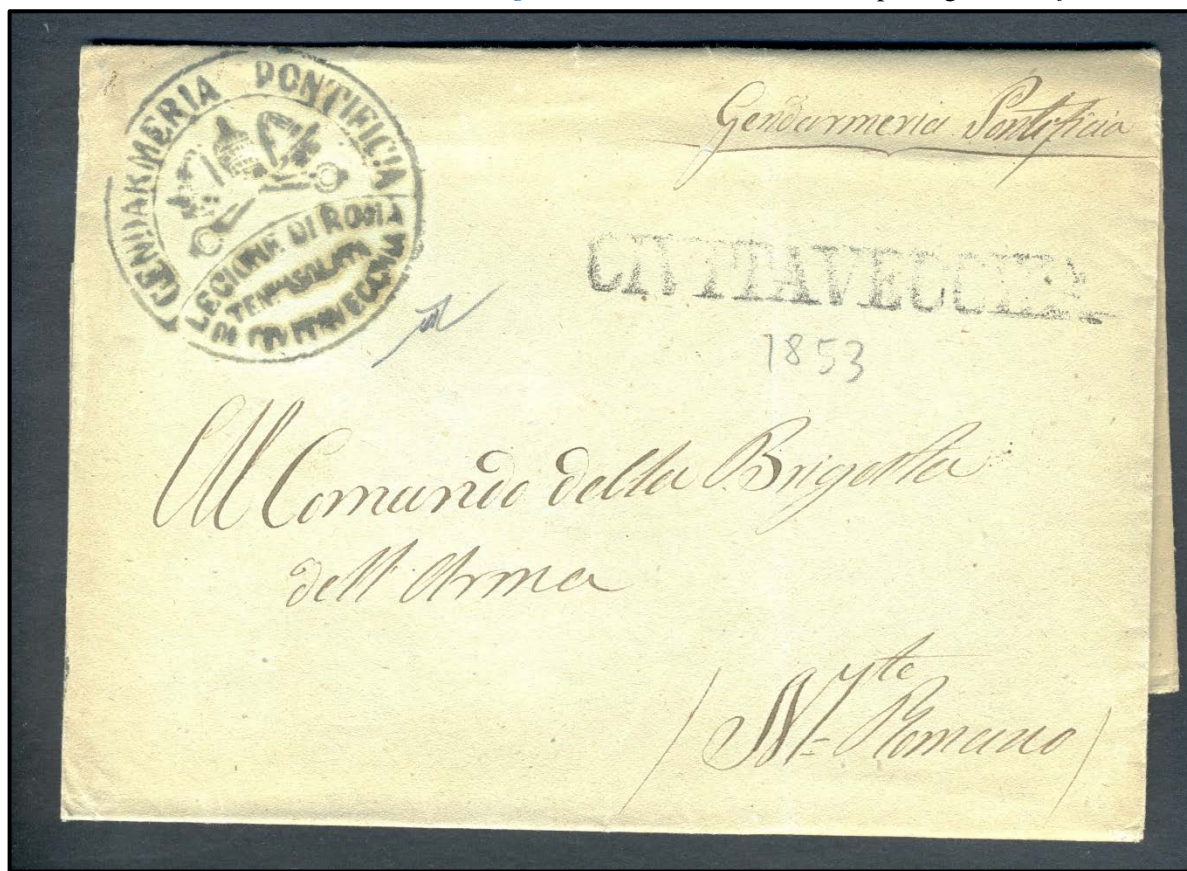 GENDARMERIA PONTIFICIA
LEGIONE DI ROMA
DI CIVITAVECCHIA
Gendarmeria Pontificia
CIVITAVECCHIA
1853
Al Comando della Brigata
dell'Arma
M=te Romano